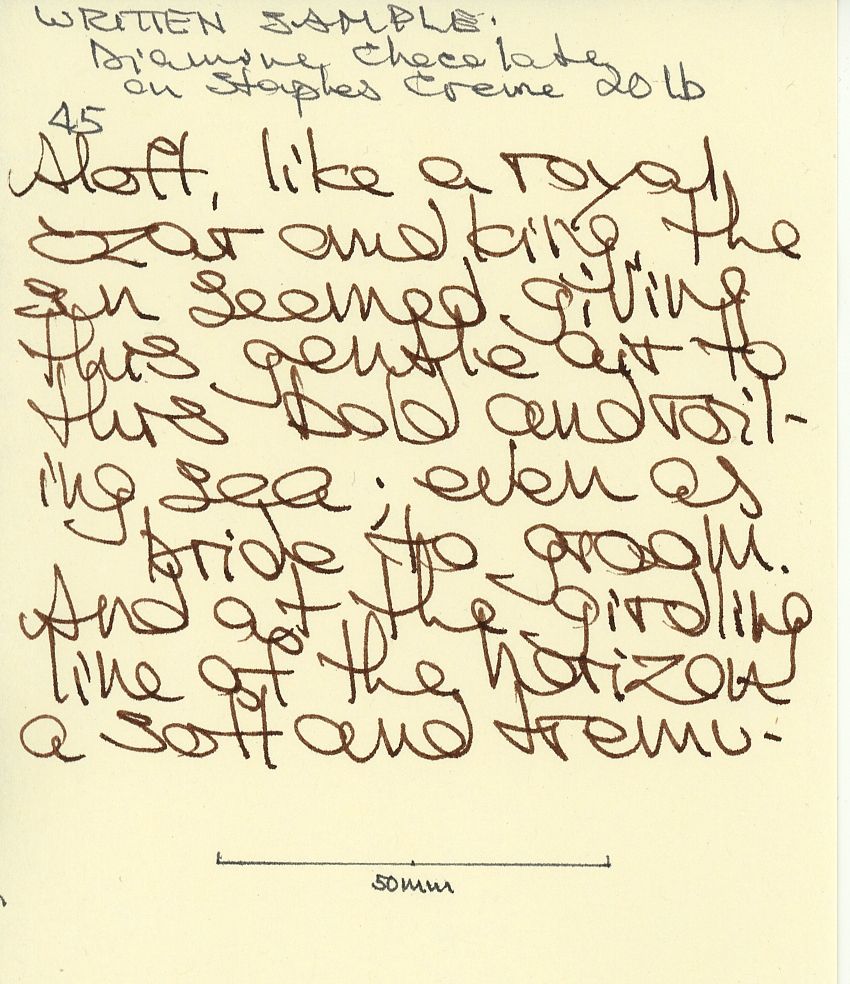 WRITTEN SAMPLE:
Diamine Chocolate
on Staples Creme 20 lb
45
Aloft, like a royal
czar and king, the
sun seemed giving
this gentle air to
this bold and roil-
ing sea; even as
bride to groom.
And at the girdling
line of the horizon
a soft and tremu-
50mm